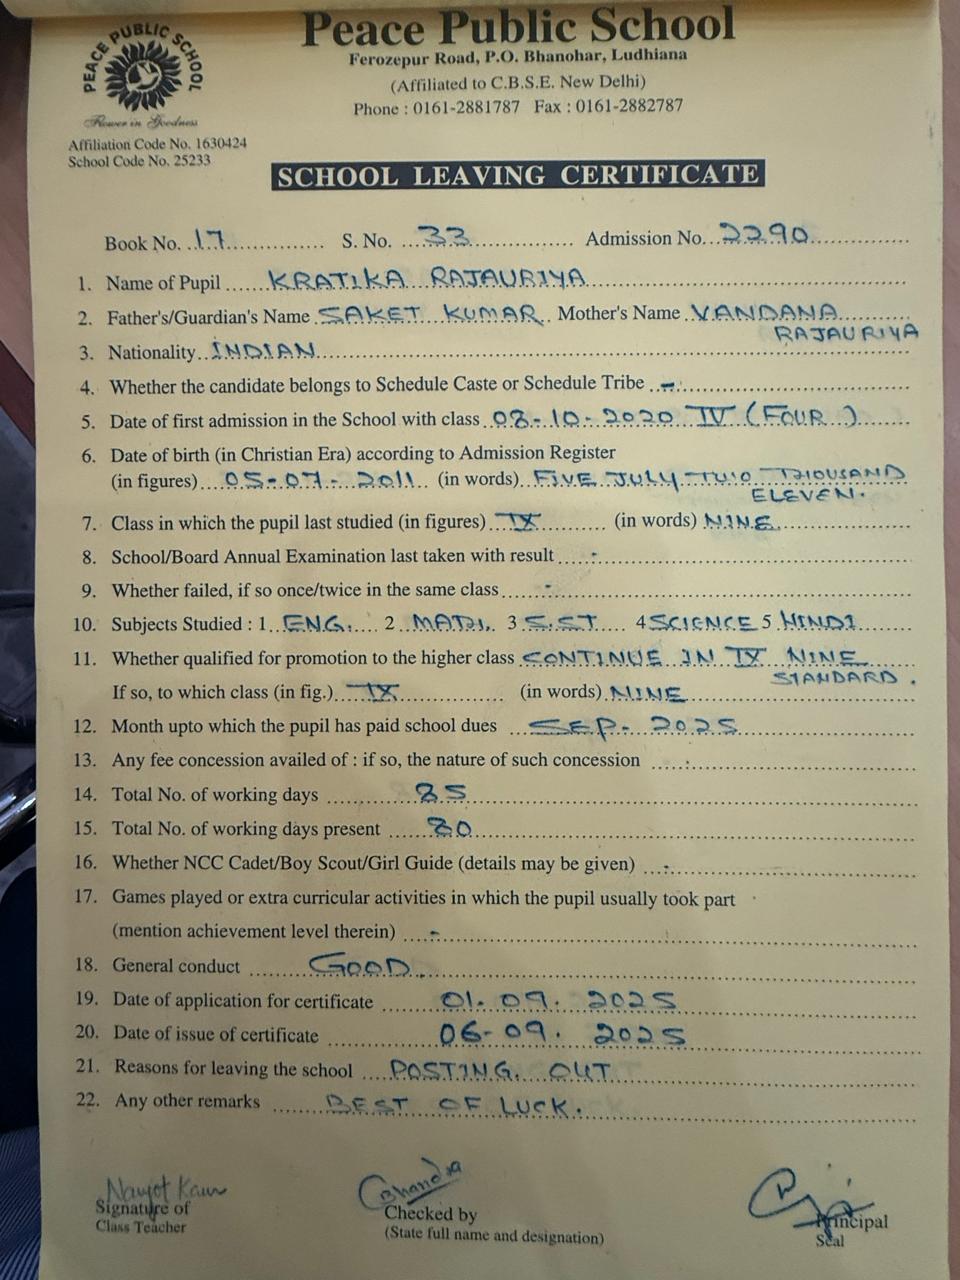 PEACE PUBLIC SCHOOL
Flower in Goodness
Peace Public School
Ferozepur Road, P.O. Bhanohar, Ludhiana
(Affiliated to C.B.S.E. New Delhi)
Phone : 0161-2881787 Fax : 0161-2882787
Affiliation Code No. 1630424
School Code No. 25233
SCHOOL LEAVING CERTIFICATE
Book No. 17 S. No. 33 Admission No. 2290
1. Name of Pupil KRATIKA RAJAURIYA
2. Father's/Guardian's Name SAKET KUMAR Mother's Name VANDANA
RAJAURIYA
3. Nationality INDIAN
4. Whether the candidate belongs to Schedule Caste or Schedule Tribe -
5. Date of first admission in the School with class 08-10-2020 IV (FOUR)
6. Date of birth (in Christian Era) according to Admission Register
(in figures) 05-07-2011 (in words) FIVE JULY TWO THOUSAND
ELEVEN.
7. Class in which the pupil last studied (in figures) IX (in words) NINE
8. School/Board Annual Examination last taken with result -
9. Whether failed, if so once/twice in the same class -
10. Subjects Studied : 1 ENG. 2 MATH. 3 S.ST 4 SCIENCE 5 HINDI
11. Whether qualified for promotion to the higher class CONTINUE IN IX NINE
STANDARD.
If so, to which class (in fig.) IX (in words) NINE
12. Month upto which the pupil has paid school dues SEP-2025
13. Any fee concession availed of : if so, the nature of such concession -
14. Total No. of working days 85
15. Total No. of working days present 80
16. Whether NCC Cadet/Boy Scout/Girl Guide (details may be given) -
17. Games played or extra curricular activities in which the pupil usually took part
(mention achievement level therein) -
18. General conduct GOOD.
19. Date of application for certificate 01.09.2025
20. Date of issue of certificate 06-09.2025
21. Reasons for leaving the school POSTING OUT
22. Any other remarks BEST OF LUCK.
Navjot Kaur
Signature of
Class Teacher
Chandra
Checked by
(State full name and designation)
Principal
Seal